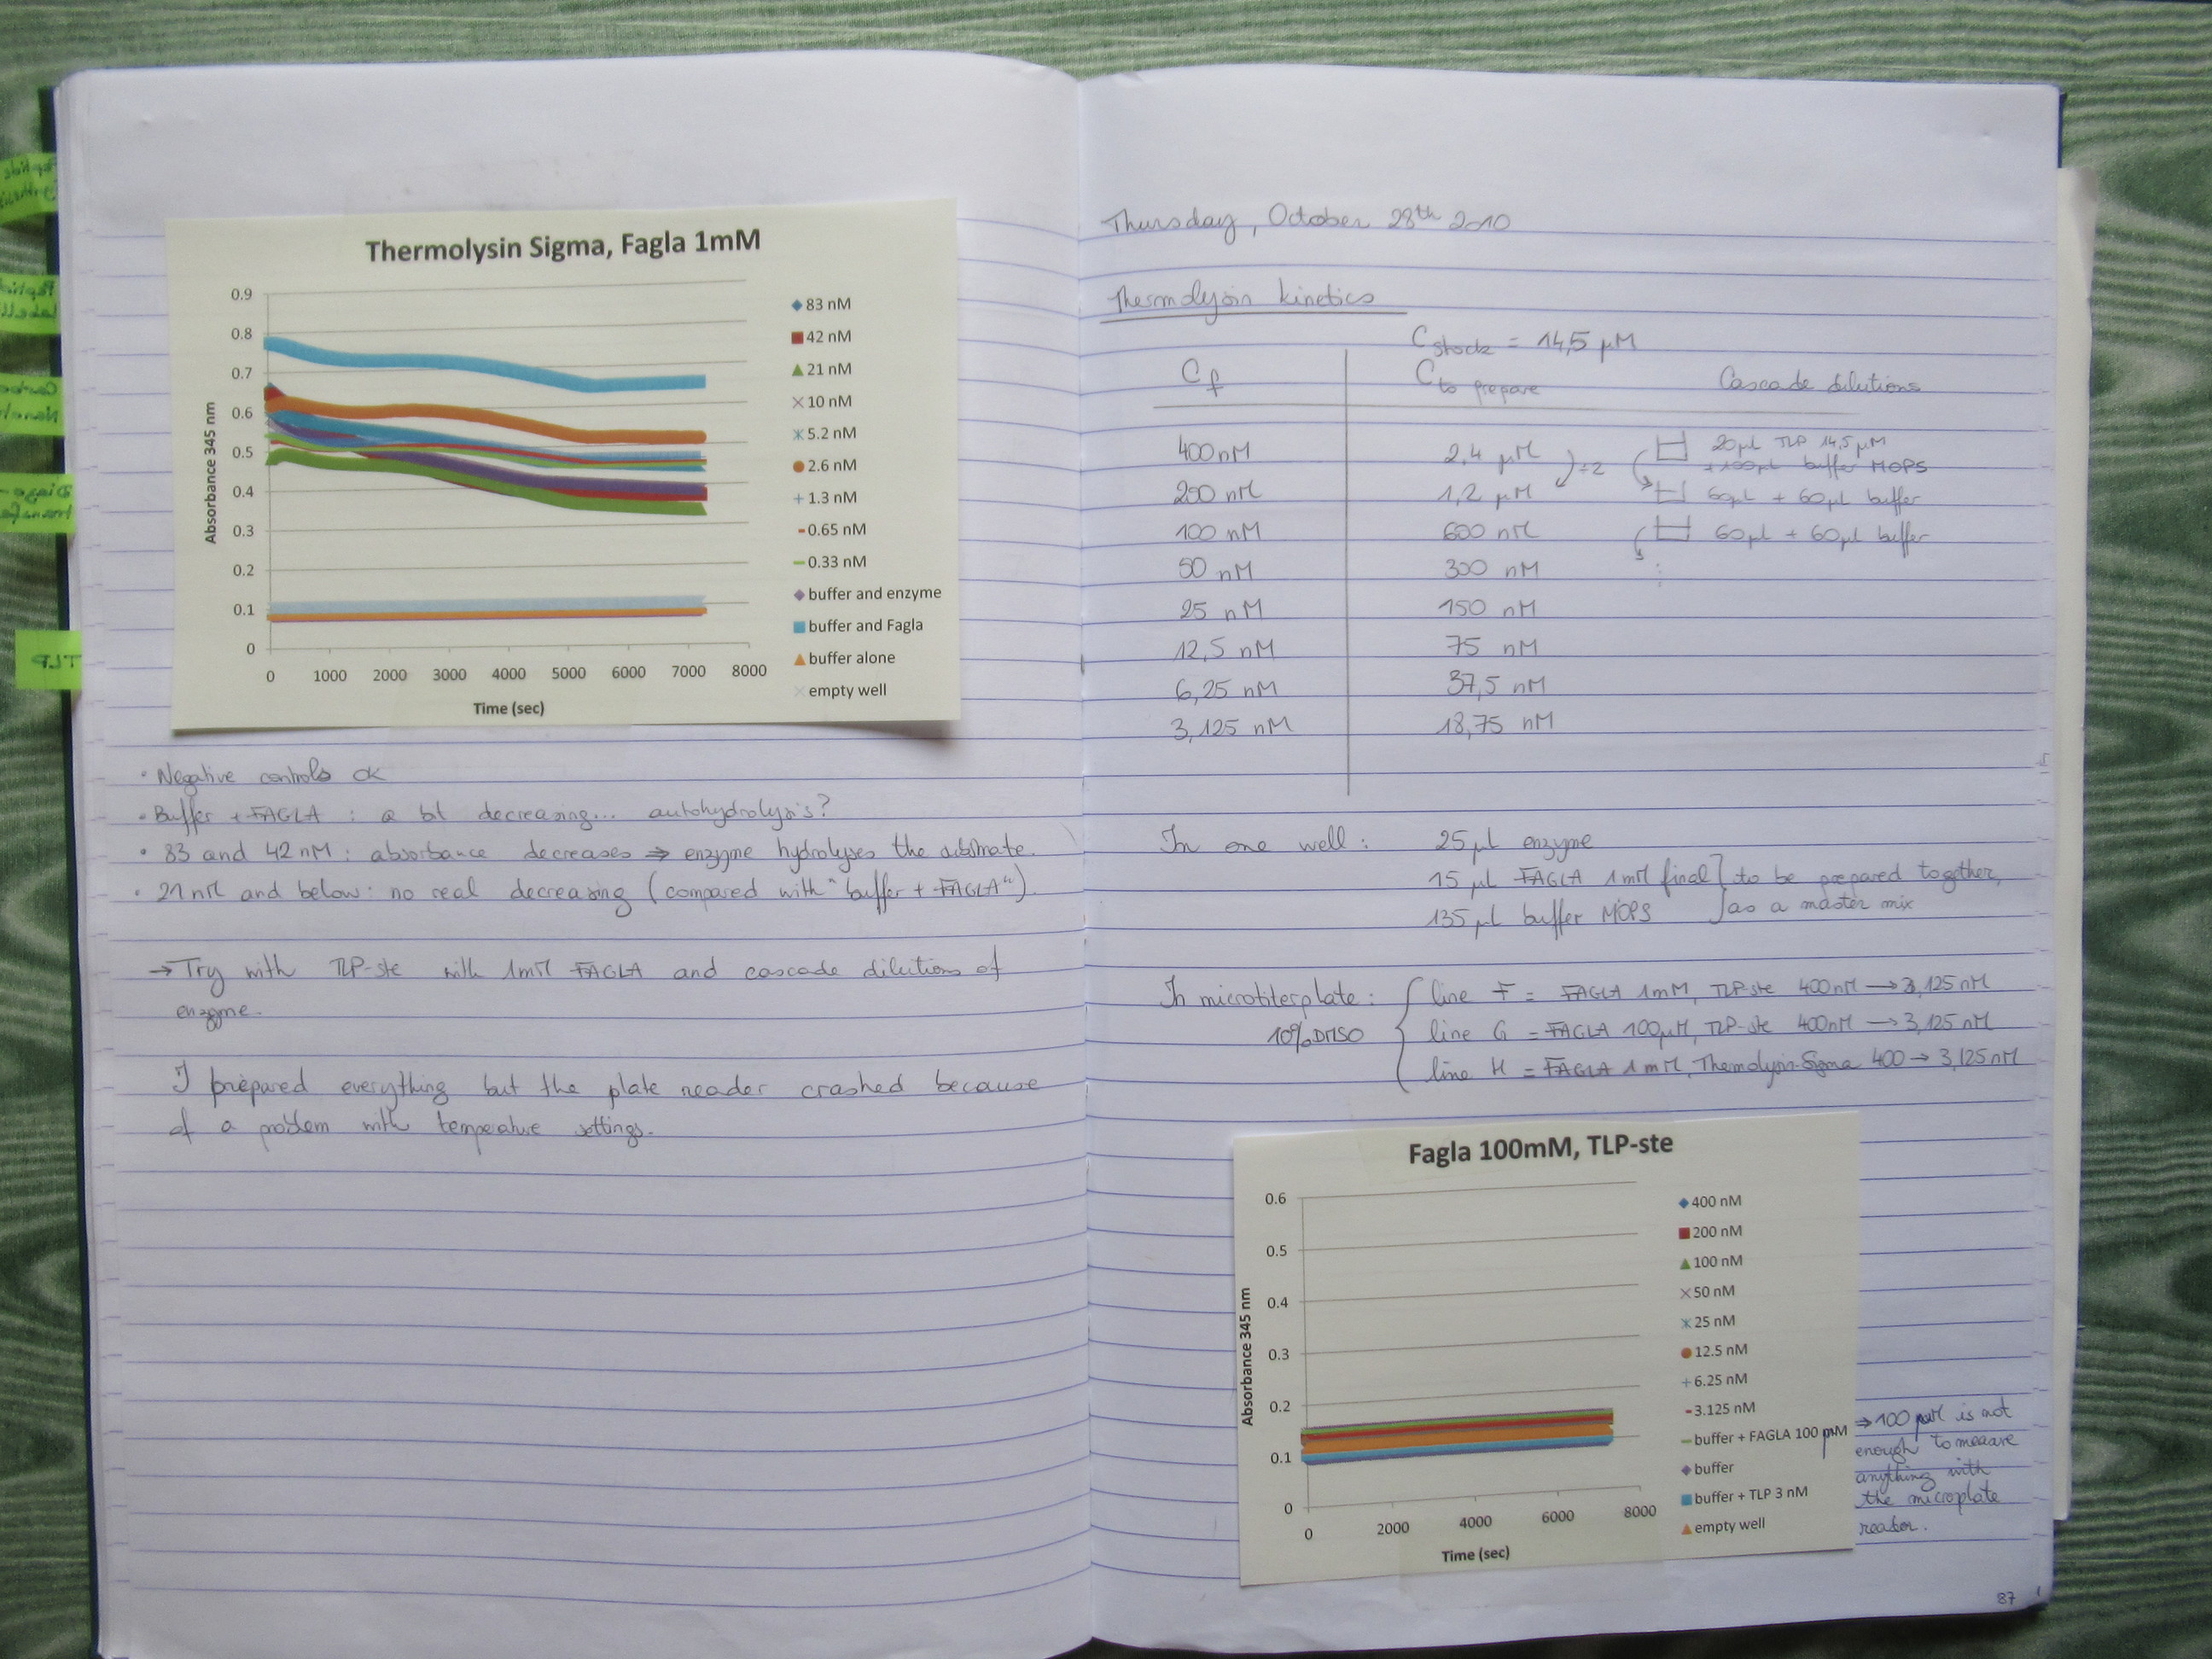 Thermolysin Sigma, Fagla 1mM
Absorbance 345 nm
0.9
0.8
0.7
0.6
0.5
0.4
0.3
0.2
0.1
0
0 1000 2000 3000 4000 5000 6000 7000 8000
Time (sec)
83 nM
42 nM
21 nM
10 nM
5.2 nM
2.6 nM
1.3 nM
0.65 nM
0.33 nM
buffer and enzyme
buffer and Fagla
buffer alone
empty well
TLP
• Negative controls ok
• Buffer + FAGLA : a bt decreasing... autohydrolysis?
• 83 and 42 nM : absorbance decreases ⇒ enzyme hydrolyses the
• 21 nM and below : no real decreasing (compared with "buffer + FAGLA")
→ Try with TLP-ste with 1mM FAGLA and cascade dilutions of
enzyme.
I prepared everything but the plate reader crashed because
of a problem with temperature settings.
Thursday, October 28th 2010
Thermolysin kinetics
C stock = 14,5 µM
Cf C to prepare Cascade dilutions
400 nM 2,4 µM ÷2 20µL TLP 14,5 µM
+ 100µL buffer MOPS
200 nM 1,2 µM 60µL + 60µL buffer
100 nM 600 nM 60µL + 60µL buffer
50 nM 300 nM
25 nM 150 nM
12,5 nM 75 nM
6,25 nM 37,5 nM
3,125 nM 18,75 nM
In one well : 25 µL enzyme
15 µL FAGLA 1mM final } to be prepared together,
135 µL buffer MOPS as a master mix
In microtiterplate : line F = FAGLA 1mM, TLP-ste 400nM → 3,125 nM
10% DMSO line G = FAGLA 100µM, TLP-ste 400nM → 3,125 nM
line H = FAGLA 1mM, Themolysin-Sigma 400 → 3,125 nM
Fagla 100mM, TLP-ste
Absorbance 345 nm
0.6
0.5
0.4
0.3
0.2
0.1
0
0 2000 4000 6000 8000
Time (sec)
400 nM
200 nM
100 nM
50 nM
25 nM
12.5 nM
6.25 nM
3.125 nM
buffer + FAGLA 100 µM
buffer
buffer + TLP 3 nM
empty well
⇒ 100 µM is not
enough to measure
anything with
the microplate
reader.
87